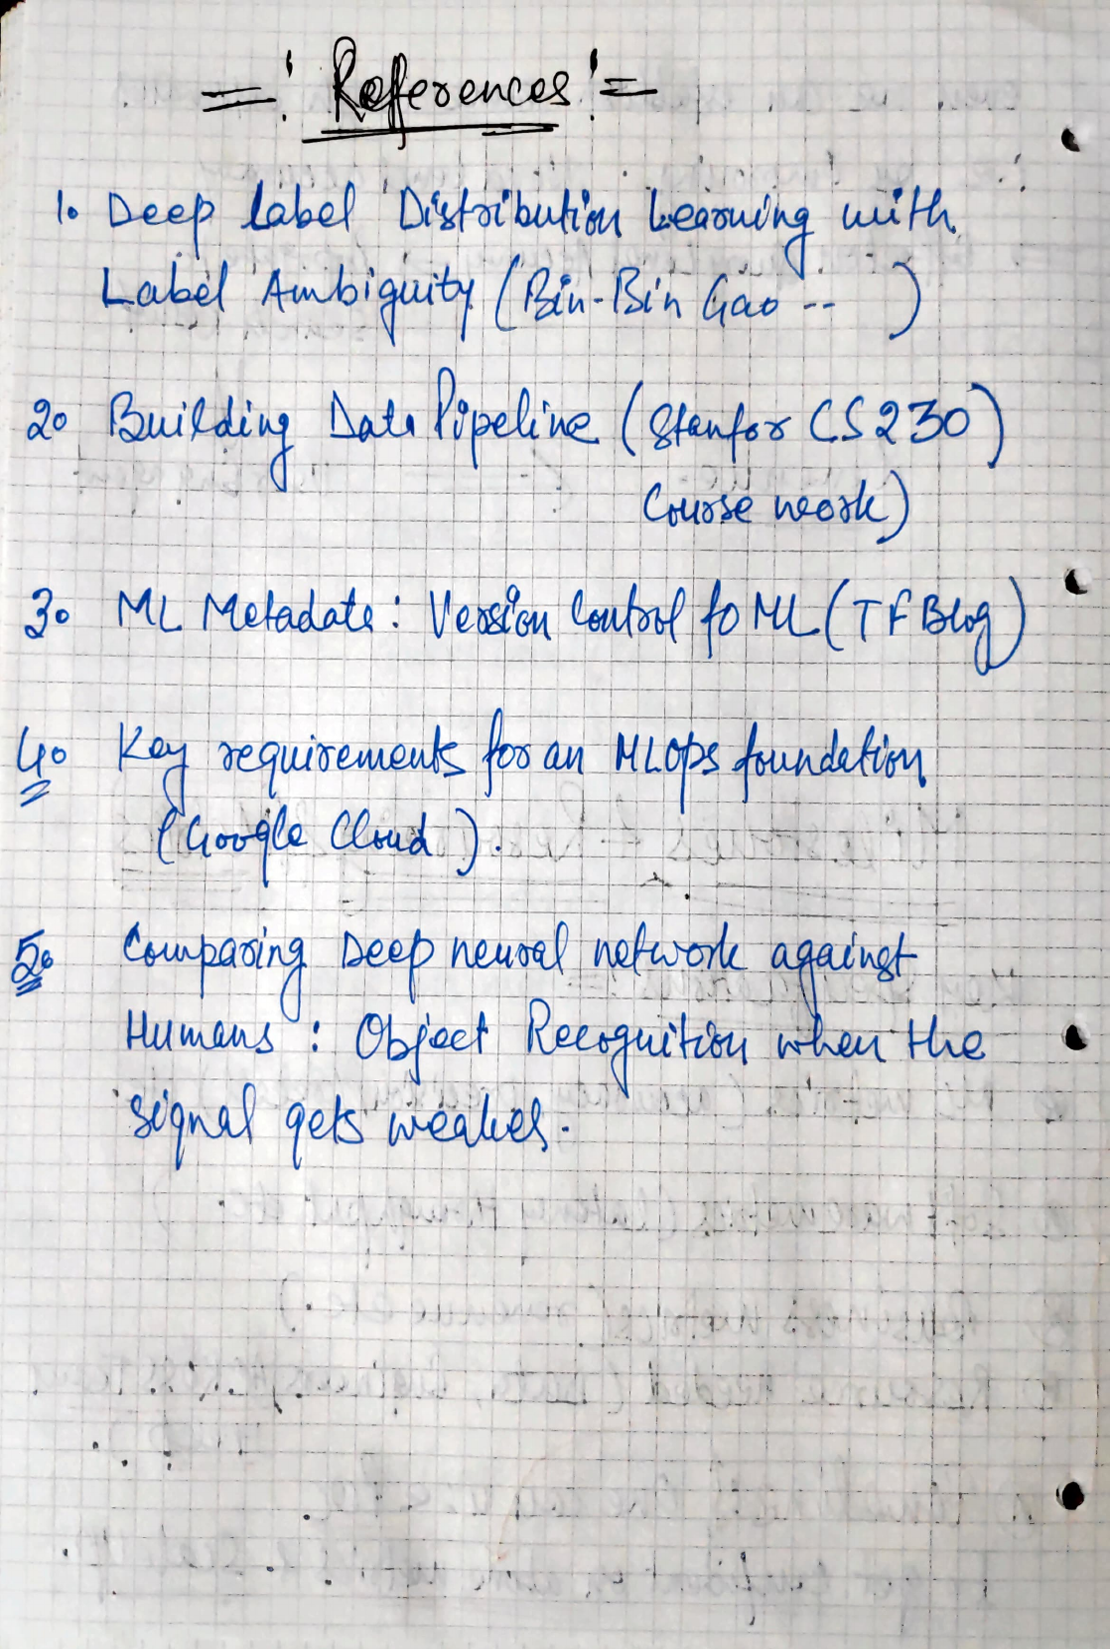 =' References '=
1. Deep Label Distribution Learning with
Label Ambiguity (Bin-Bin Gao -- )
2. Building Data Pipeline (Stanfor CS230)
Course work)
3. ML Metadata: Version Control fo ML (TF Blog)
4. Key requirements for an MLOps foundation
(Google Cloud).
5. Comparing Deep neural network against
Humans : Object Recognition when the
signal gets weaker.